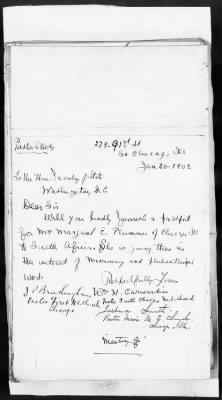 279-91st St
So Chicago, Ills
Jan 20-1902
To the Hon. Secretary of State
Washington, D.C
Dear Sir
Will you kindly furnish a passport
for Mrs Margaret E. Plummer of Chicago Ill
to South Africa. She is going there in
the interest of missionary and philanthropic
work
Respectfully Yours
J P Brushingham Wm H. Carwardine
Pastor First M.E Church Pastor South Chicago M.E. Church
Chicago
Pastor M. E. Church
Chicago Ills.